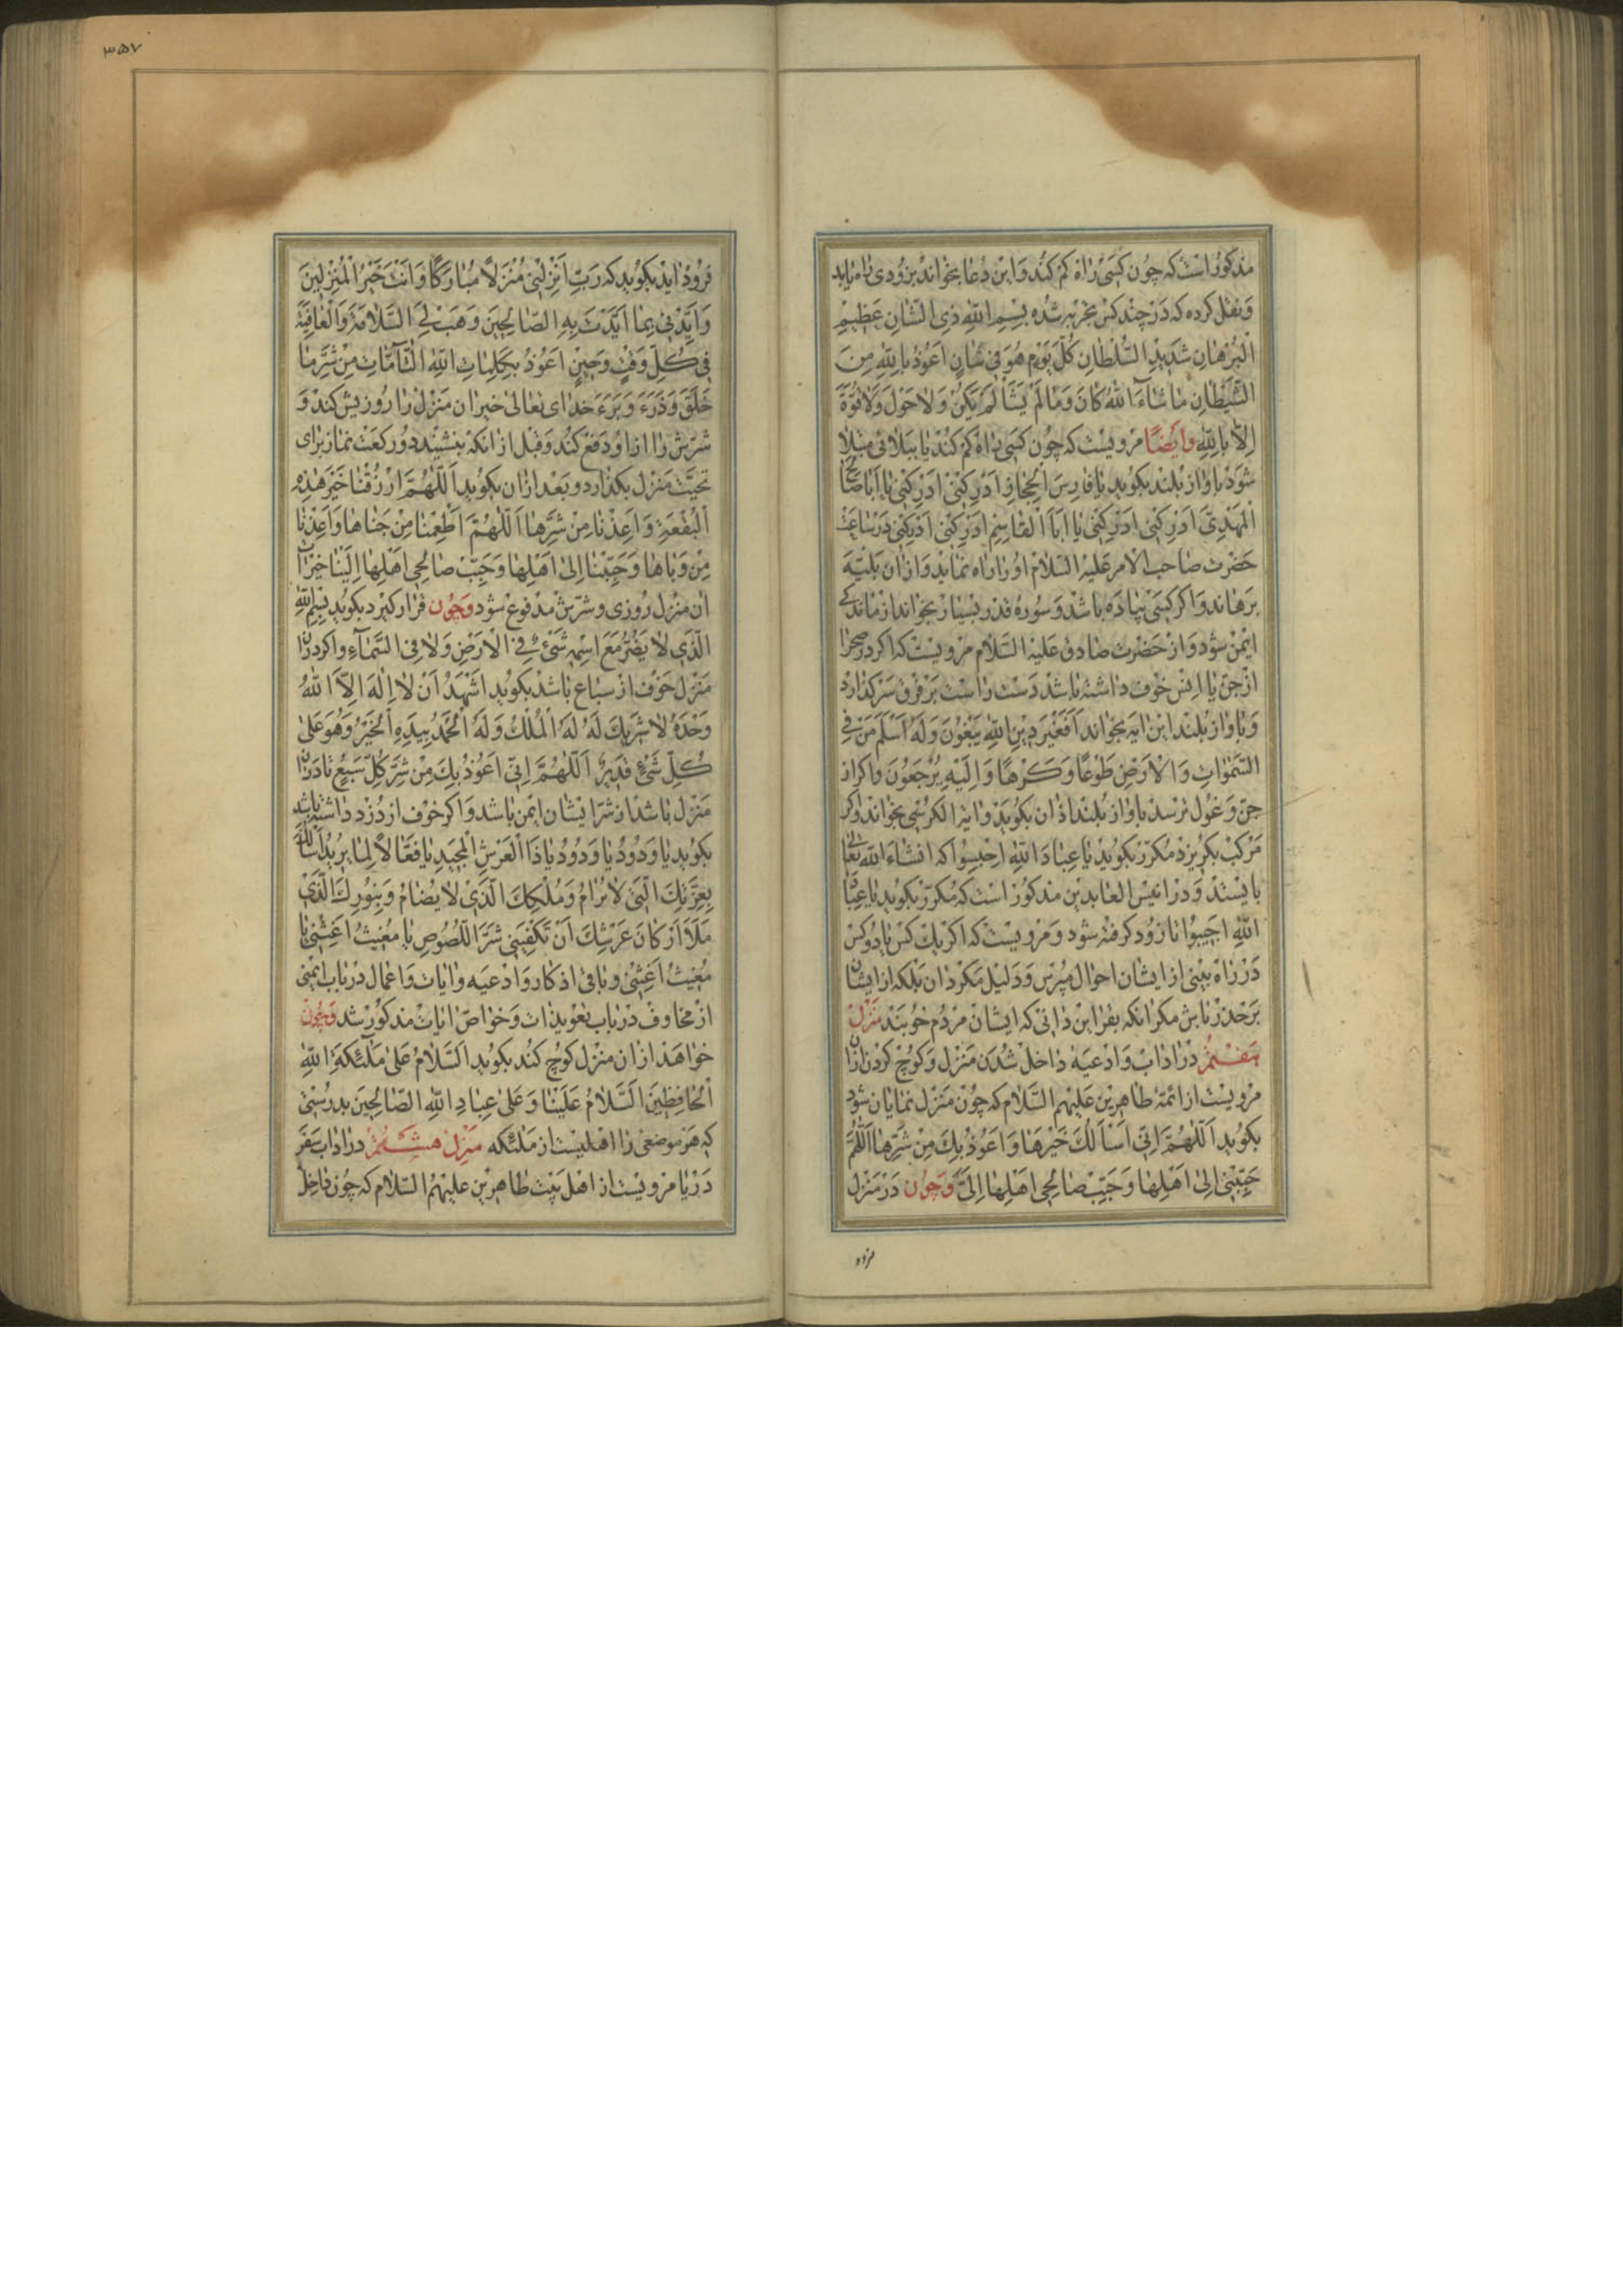 مذکور است که چون کسی راه گم کند و این دعا بخواند بزودی راه یابد
و نقل کرده که در چند کس تجربه شده بِسْمِ اللّٰهِ ذِی الشَّانِ عَظِیْمِ
الْبُرْهَانِ شَدِیْدِ السُّلْطَانِ کُلَّ یَوْمٍ هُوَ فِی شَانٍ اَعُوْذُ بِاللّٰهِ مِنَ
الشَّیْطَانِ مَا شَاءَ اللّٰهُ کَانَ وَ مَا لَمْ یَشَأْ لَمْ یَکُنْ وَلَا حَوْلَ وَلَا قُوَّةَ
اِلَّا بِاللّٰهِ وایضًا مرویست که چون کسی راه گم کند یا ببلائی مبتلا
شود باواز بلند بکوید یا فارس الحجاز ادرکنی ادرکنی یا اباصالح
المهدی ادرکنی ادرکنی یا ابا القاسم ادرکنی ادرکنی در ساعت
حضرت صاحب الامر علیه السلام او را راه نماید و از ان بلیه
برهاند و اکر کسی پیاده باشد و سوره قدر بسیار بخواند از ماندکی
ایمن شود و از حضرت صادق علیه السلام مرویست که اکر در صحرا
از جن یا انس خوف داشته باشد دست راست بر فرق سر کذارد
و باواز بلند این ایه بخواند اَفَغَیْرَ دِیْنِ اللّٰهِ یَبْغُوْنَ وَلَهُ اَسْلَمَ مَنْ فِی
السَّمٰوَاتِ وَ الْاَرْضِ طَوْعًا وَ کَرْهًا وَ اِلَیْهِ یُرْجَعُوْنَ و اکر از
جن و غول ترسد باواز بلند اذان بکوید و ایة الکرسی بخواند و اکر
مرکب بکریزد مکرر بکوید یا عِبَادَ اللّٰهِ احْبِسُوا که انشاء الله تعالی
بایستد و در انیس العابدین مذکور است که مکرر بکوید یا عباد
اللّٰهِ اجیبوا تا زود کرفته شود و مرویست که اکر یک کس یا دو کس
در راه بینی از ایشان احوال مپرس و دلیل مکردان بلکه از ایشان
بر حذر باش مکر انکه بقراین دانی که ایشان مردم خوبند منزل
هفتم در اداب و ادعیه داخل شدن منزل و کوچ کردن ازان
مرویست از ائمه طاهرین علیهم السلام که چون منزل نمایان شود
بکوید اَللّٰهُمَّ اِنِّی اَسْاَلُکَ خَیْرَهَا وَ اَعُوْذُ بِکَ مِنْ شَرِّهَا اَللّٰهُمَّ
حَبِّبْنِی اِلٰی اَهْلِهَا وَ حَبِّبْ صَالِحِی اَهْلِهَا اِلَیَّ و چون در منزل
فرود
۳۵۷
فرود اید بکوید که رَبِّ اَنْزِلْنِی مُنْزَلًا مُبَارَکًا وَ اَنْتَ خَیْرُ الْمُنْزِلِیْنَ
وَ اَیِّدْنِی بِمَا اَیَّدْتَ بِهِ الصَّالِحِیْنَ وَ هَبْ لِیَ السَّلَامَةَ وَ الْعَافِیَةَ
فِی کُلِّ وَقْتٍ وَ حِیْنٍ اَعُوْذُ بِکَلِمَاتِ اللّٰهِ التَّامَّاتِ مِنْ شَرِّ مَا
خَلَقَ وَ ذَرَءَ وَ بَرَءَ خدای تعالی خیر ان منزل را روزیش کند و
شرش را از او دفع کند و قبل از انکه بنشیند دو رکعت نماز برای
تحیت منزل بکذارد و بعد ازان بکوید اَللّٰهُمَّ ارْزُقْنَا خَیْرَ هٰذِهِ
الْبُقْعَةِ وَ اَعِذْنَا مِنْ شَرِّهَا اَللّٰهُمَّ اَطْعِمْنَا مِنْ جَنَاهَا وَ اَعِذْنَا
مِنْ وَبَاهَا وَ حَبِّبْنَا اِلٰی اَهْلِهَا وَ حَبِّبْ صَالِحِی اَهْلِهَا اِلَیْنَا خیرات
ان منزل روزی و شرش مدفوع شود و چون قرار کیرد بکوید بِسْمِ اللّٰهِ
الَّذِی لَا یَضُرُّ مَعَ اسْمِهِ شَیْءٌ فِی الْاَرْضِ وَلَا فِی السَّمَاءِ و اکر دران
منزل خوف از سباع باشد بکوید اَشْهَدُ اَنْ لَا اِلٰهَ اِلَّا اللّٰهُ
وَحْدَهُ لَا شَرِیْکَ لَهُ لَهُ الْمُلْکُ وَلَهُ الْحَمْدُ بِیَدِهِ الْخَیْرُ وَ هُوَ عَلٰی
کُلِّ شَیْءٍ قَدِیْرٌ اَللّٰهُمَّ اِنِّی اَعُوْذُ بِکَ مِنْ شَرِّ کُلِّ سَبُعٍ تا دران
منزل باشد از شر ایشان ایمن باشد و اکر خوف از دزد داشته باشد
بکوید یَا وَدُوْدُ یَا وَدُوْدُ یَا ذَا الْعَرْشِ الْمَجِیْدِ یَا فَعَّالًا لِمَا یُرِیْدُ اَسْاَلُکَ
بِعِزَّتِکَ الَّتِی لَا تُرَامُ وَ مُلْکِکَ الَّذِی لَا یُضَامُ وَ بِنُوْرِکَ الَّذِی
مَلَاَ اَرْکَانَ عَرْشِکَ اَنْ تَکْفِیَنِی شَرَّ اللُّصُوْصِ یَا مُغِیْثُ اَغِثْنِی یَا
مُغِیْثُ اَغِثْنِی و باقی اذکار و ادعیه و ایات و اعمال در باب ایمنی
از مخاوف در باب تعویذات و خواص ایات مذکور شد و چون
خواهد از ان منزل کوچ کند بکوید اَلسَّلَامُ عَلٰی مَلٰئِکَةِ اللّٰهِ
الْحَافِظِیْنَ اَلسَّلَامُ عَلَیْنَا وَ عَلٰی عِبَادِ اللّٰهِ الصَّالِحِیْنَ بدرستی
که هر موضعی را اهلیست از ملئکه منزل هشتم در اداب سفر
دریا مرویست از اهل بیت طاهرین علیهم السلام که چون داخل